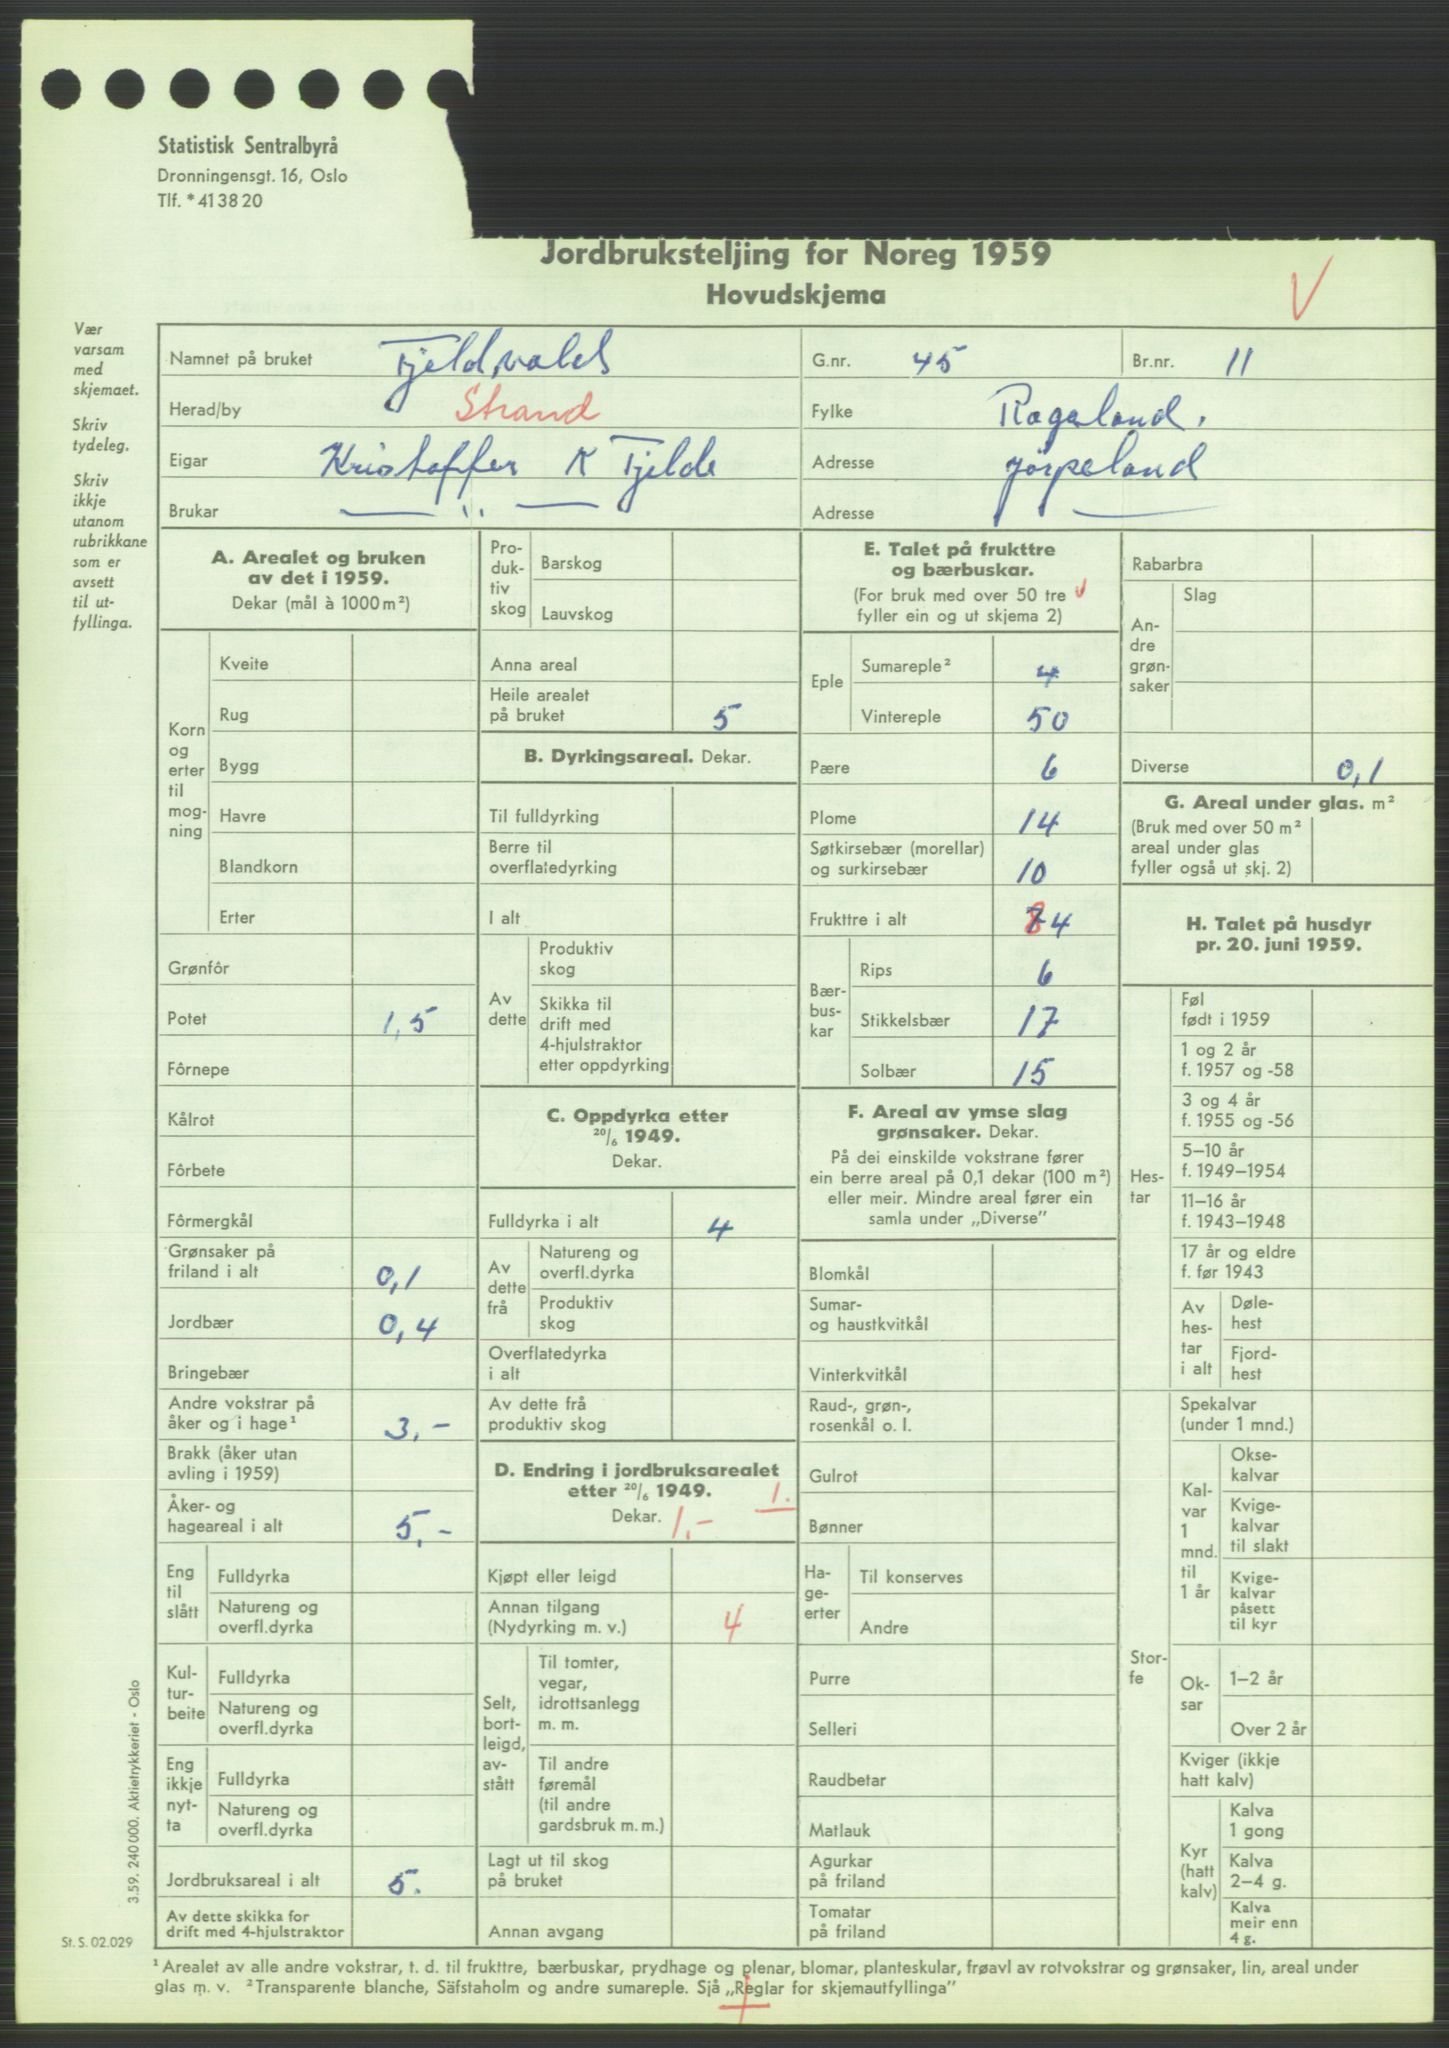 Statistisk Sentralbyrå
Dronningensgt. 16, Oslo
Tlf. * 41 38 20
Jordbruksteljing for Noreg 1959
Hovudskjema
V
Vær
varsam
med
skjemaet.
Skriv
tydeleg.
Skriv
ikkje
utanom
rubrikkane
som er
avsett
til ut-
fyllinga.
Namnet på bruket
G.nr. 45
Br.nr. 11
Herad/by Strand
Fylke Rogaland.
Eigar Kristoffer K Tjelde
Adresse Jörpeland
Brukar — " —
Adresse —
A. Arealet og bruken
av det i 1959.
Dekar (mål à 1000 m²)
Korn
og
erter
til
mog-
ning
Kveite
Rug
Bygg
Havre
Blandkorn
Erter
Grønfôr
Potet 1,5
Fôrnepe
Kålrot
Fôrbete
Fôrmergkål
Grønsaker på
friland i alt 0,1
Jordbær 0,4
Bringebær
Andre vokstrar på
åker og i hage¹ 3,-
Brakk (åker utan
avling i 1959)
Åker- og
hageareal i alt 5,-
Eng
til
slått
Fulldyrka
Natureng og
overfl.dyrka
Kul-
tur-
beite
Fulldyrka
Natureng og
overfl.dyrka
Eng
ikkje
nyt-
ta
Fulldyrka
Natureng og
overfl.dyrka
Jordbruksareal i alt 5.
Av dette skikka for
drift med 4-hjulstraktor
Pro-
duk-
tiv
skog
Barskog
Lauvskog
Anna areal
Heile arealet
på bruket 5
B. Dyrkingsareal. Dekar.
Til fulldyrking
Berre til
overflatedyrking
I alt
Av
dette
Produktiv
skog
Skikka til
drift med
4-hjulstraktor
etter oppdyrking
C. Oppdyrka etter
20/6 1949.
Dekar.
Fulldyrka i alt 4
Av
dette
frå
Natureng og
overfl.dyrka
Produktiv
skog
Overflatedyrka
i alt
Av dette frå
produktiv skog
D. Endring i jordbruksarealet
etter 20/6 1949. 1.
Dekar. 1,-
Kjøpt eller leigd
Annan tilgang
(Nydyrking m. v.) 4
Selt,
bort-
leigd,
av-
stått
Til tomter,
vegar,
idrottsanlegg
m. m.
Til andre
føremål
(til andre
gardsbruk m. m.)
Lagt ut til skog
på bruket
Annan avgang
E. Talet på frukttre
og bærbuskar.
(For bruk med over 50 tre V
fyller ein og ut skjema 2)
Eple
Sumareple² 4
Vintereple 50
Pære 6
Plome 14
Søtkirsebær (morellar)
og surkirsebær 10
Frukttre i alt 84
Bær-
bus-
kar
Rips 6
Stikkelsbær 17
Solbær 15
F. Areal av ymse slag
grønsaker. Dekar.
På dei einskilde vokstrane fører
ein berre areal på 0,1 dekar (100 m²)
eller meir. Mindre areal fører ein
samla under „Diverse"
Blomkål
Sumar-
og haustkvitkål
Vinterkvitkål
Raud-, grøn-,
rosenkål o. l.
Gulrot
Bønner
Ha-
ge-
erter
Til konserves
Andre
Purre
Selleri
Raudbetar
Matlauk
Agurkar
på friland
Tomatar
på friland
Rabarbra
An-
dre
grøn-
saker
Slag
Diverse 0,1
G. Areal under glas. m²
(Bruk med over 50 m²
areal under glas
fyller også ut skj. 2)
H. Talet på husdyr
pr. 20. juni 1959.
Hes-
tar
Føl
født i 1959
1 og 2 år
f. 1957 og -58
3 og 4 år
f. 1955 og -56
5–10 år
f. 1949–1954
11–16 år
f. 1943–1948
17 år og eldre
f. før 1943
Av
hes-
tar
i alt
Døle-
hest
Fjord-
hest
Stor-
fe
Spekalvar
(under 1 mnd.)
Kal-
var
1
mnd.
til
1 år
Okse-
kalvar
Kvige-
kalvar
til slakt
Kvige-
kalvar
påsett
til kyr
Ok-
sar
1–2 år
Over 2 år
Kviger (ikkje
hatt kalv)
Kyr
(hatt
kalv)
Kalva
1 gong
Kalva
2–4 g.
Kalva
meir enn
4 g.
3.59. 240 000. Aktietrykkeriet - Oslo
St. S. 02.029
¹ Arealet av alle andre vokstrar, t. d. til frukttre, bærbuskar, prydhage og plenar, blomar, planteskular, frøavl av rotvokstrar og grønsaker, lin, areal under
glas m. v. ² Transparente blanche, Säfstaholm og andre sumareple. Sjå „Reglar for skjemautfyllinga"
+